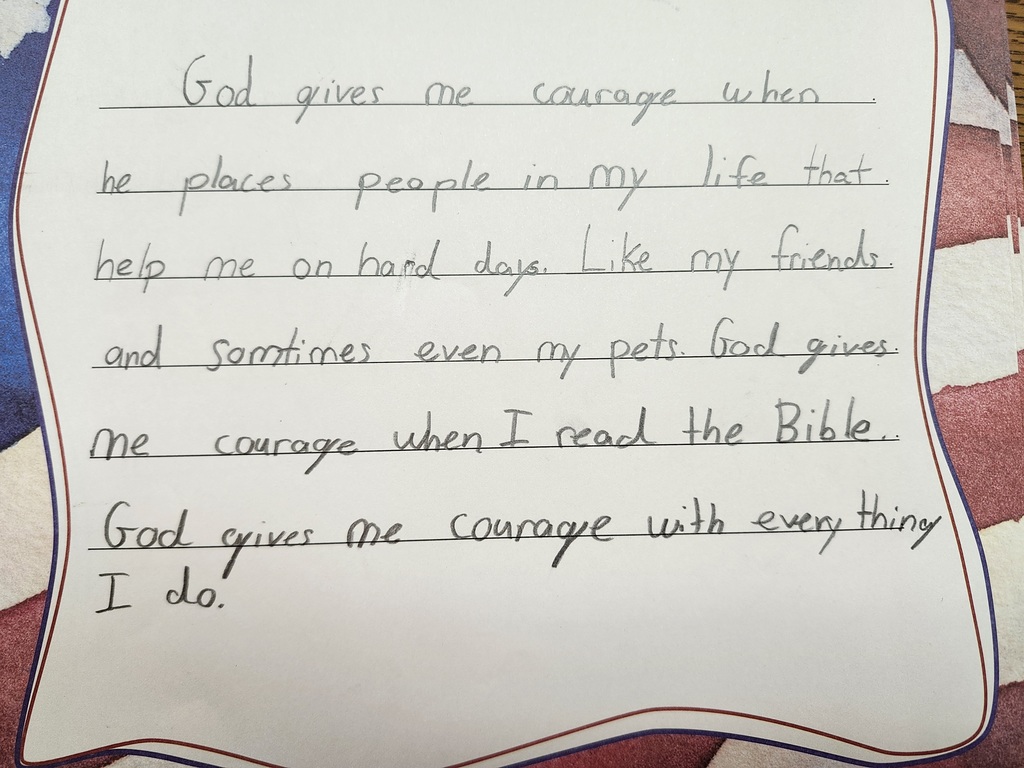 God gives me courage when
he places people in my life that
help me on hard days. Like my friends
and somtimes even my pets. God gives
me courage when I read the Bible.
God gives me courage with every thing
I do.